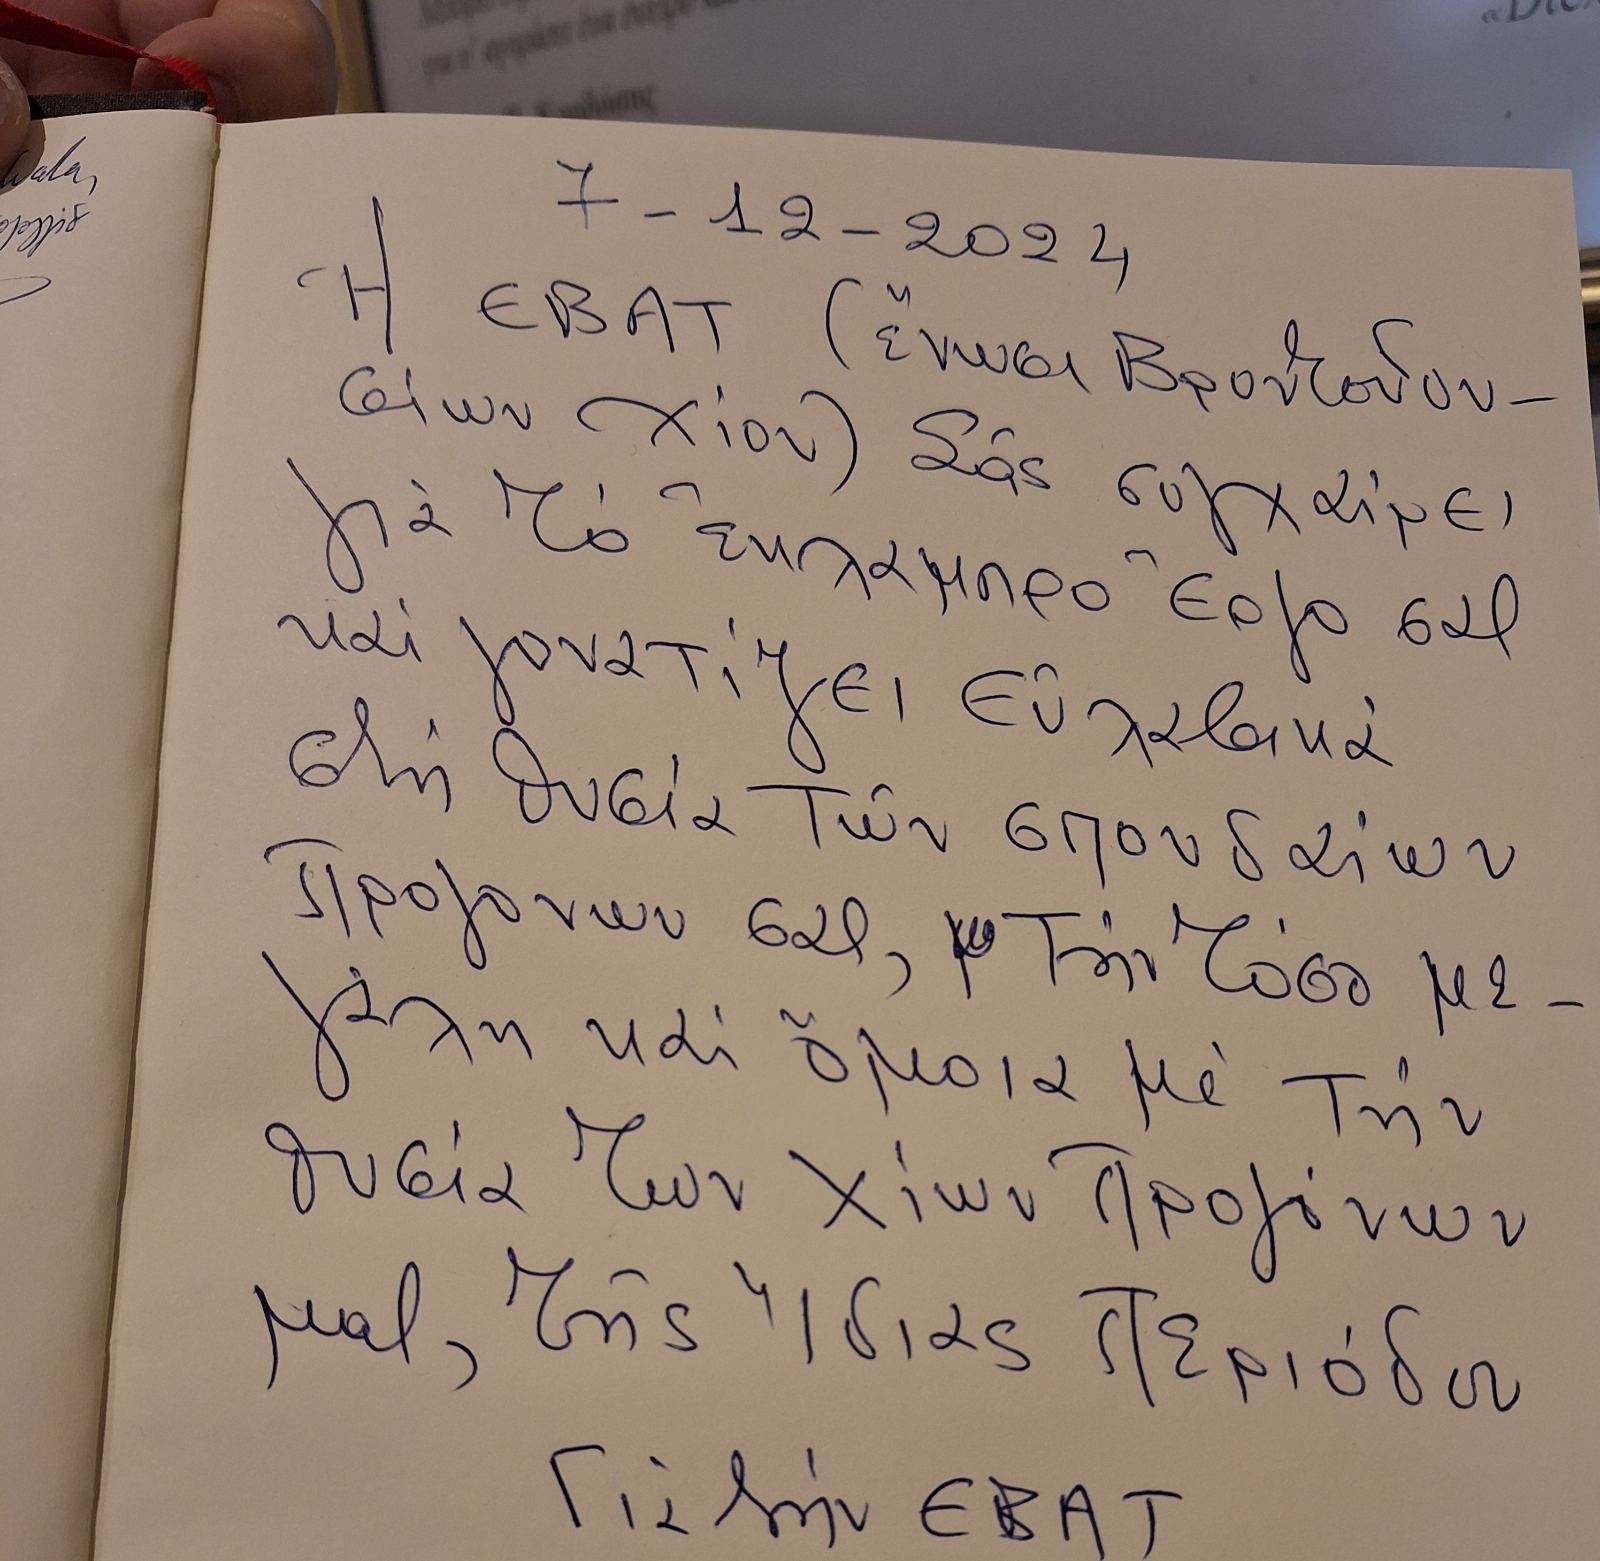 για ν' αγοράσει ένα όνειρο
«Dick
7-12-2024
Ἡ ΕΒΑΤ (ἕνωσι Βροντάδου-
σίων Χίου) Σᾶς συγχαίρει
γιὰ τὸ "ἐκλαμπρο" ἔργο σας
καὶ γονατίζει εὐλαβικὰ
στὴ θυσία τῶν σπουδαίων
Προγονων σας, τὴν τόσο με-
γάλη καὶ ὅμοια μὲ τὴν
θυσία των Χίων Προγόνων
μας, τῆς Ἴδιας Περιόδου
Γιὰ τὴν ΕΒΑΤ